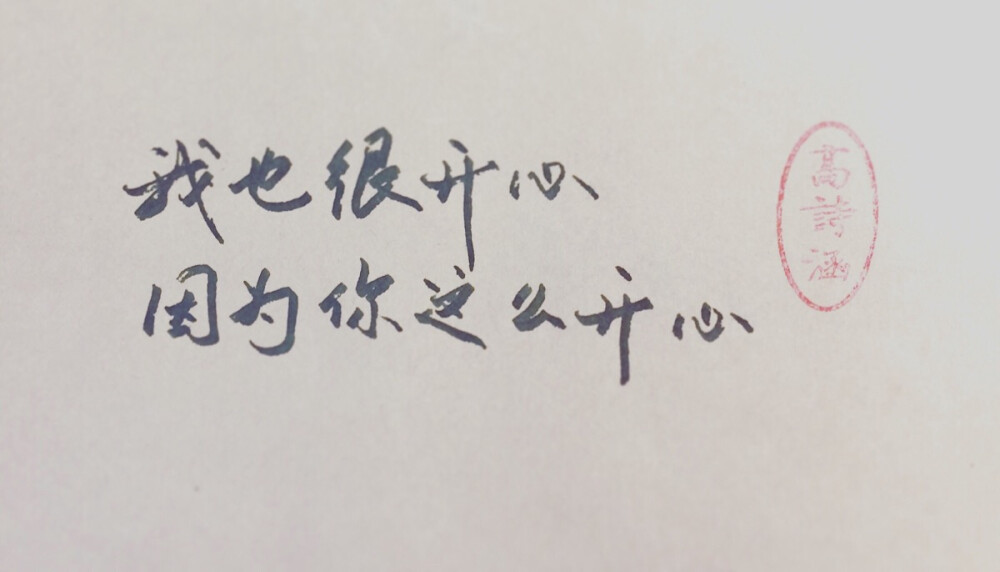 我也很开心
因为你这么开心
高詩涵